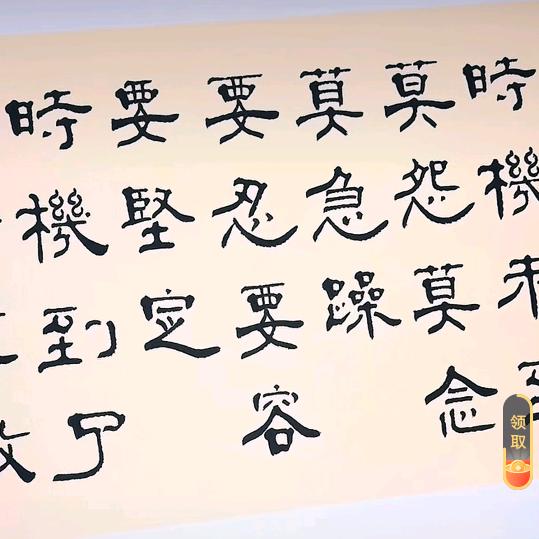 時機未到
莫怨莫念
莫急躁
要忍要容
要堅定
時機到了
领取